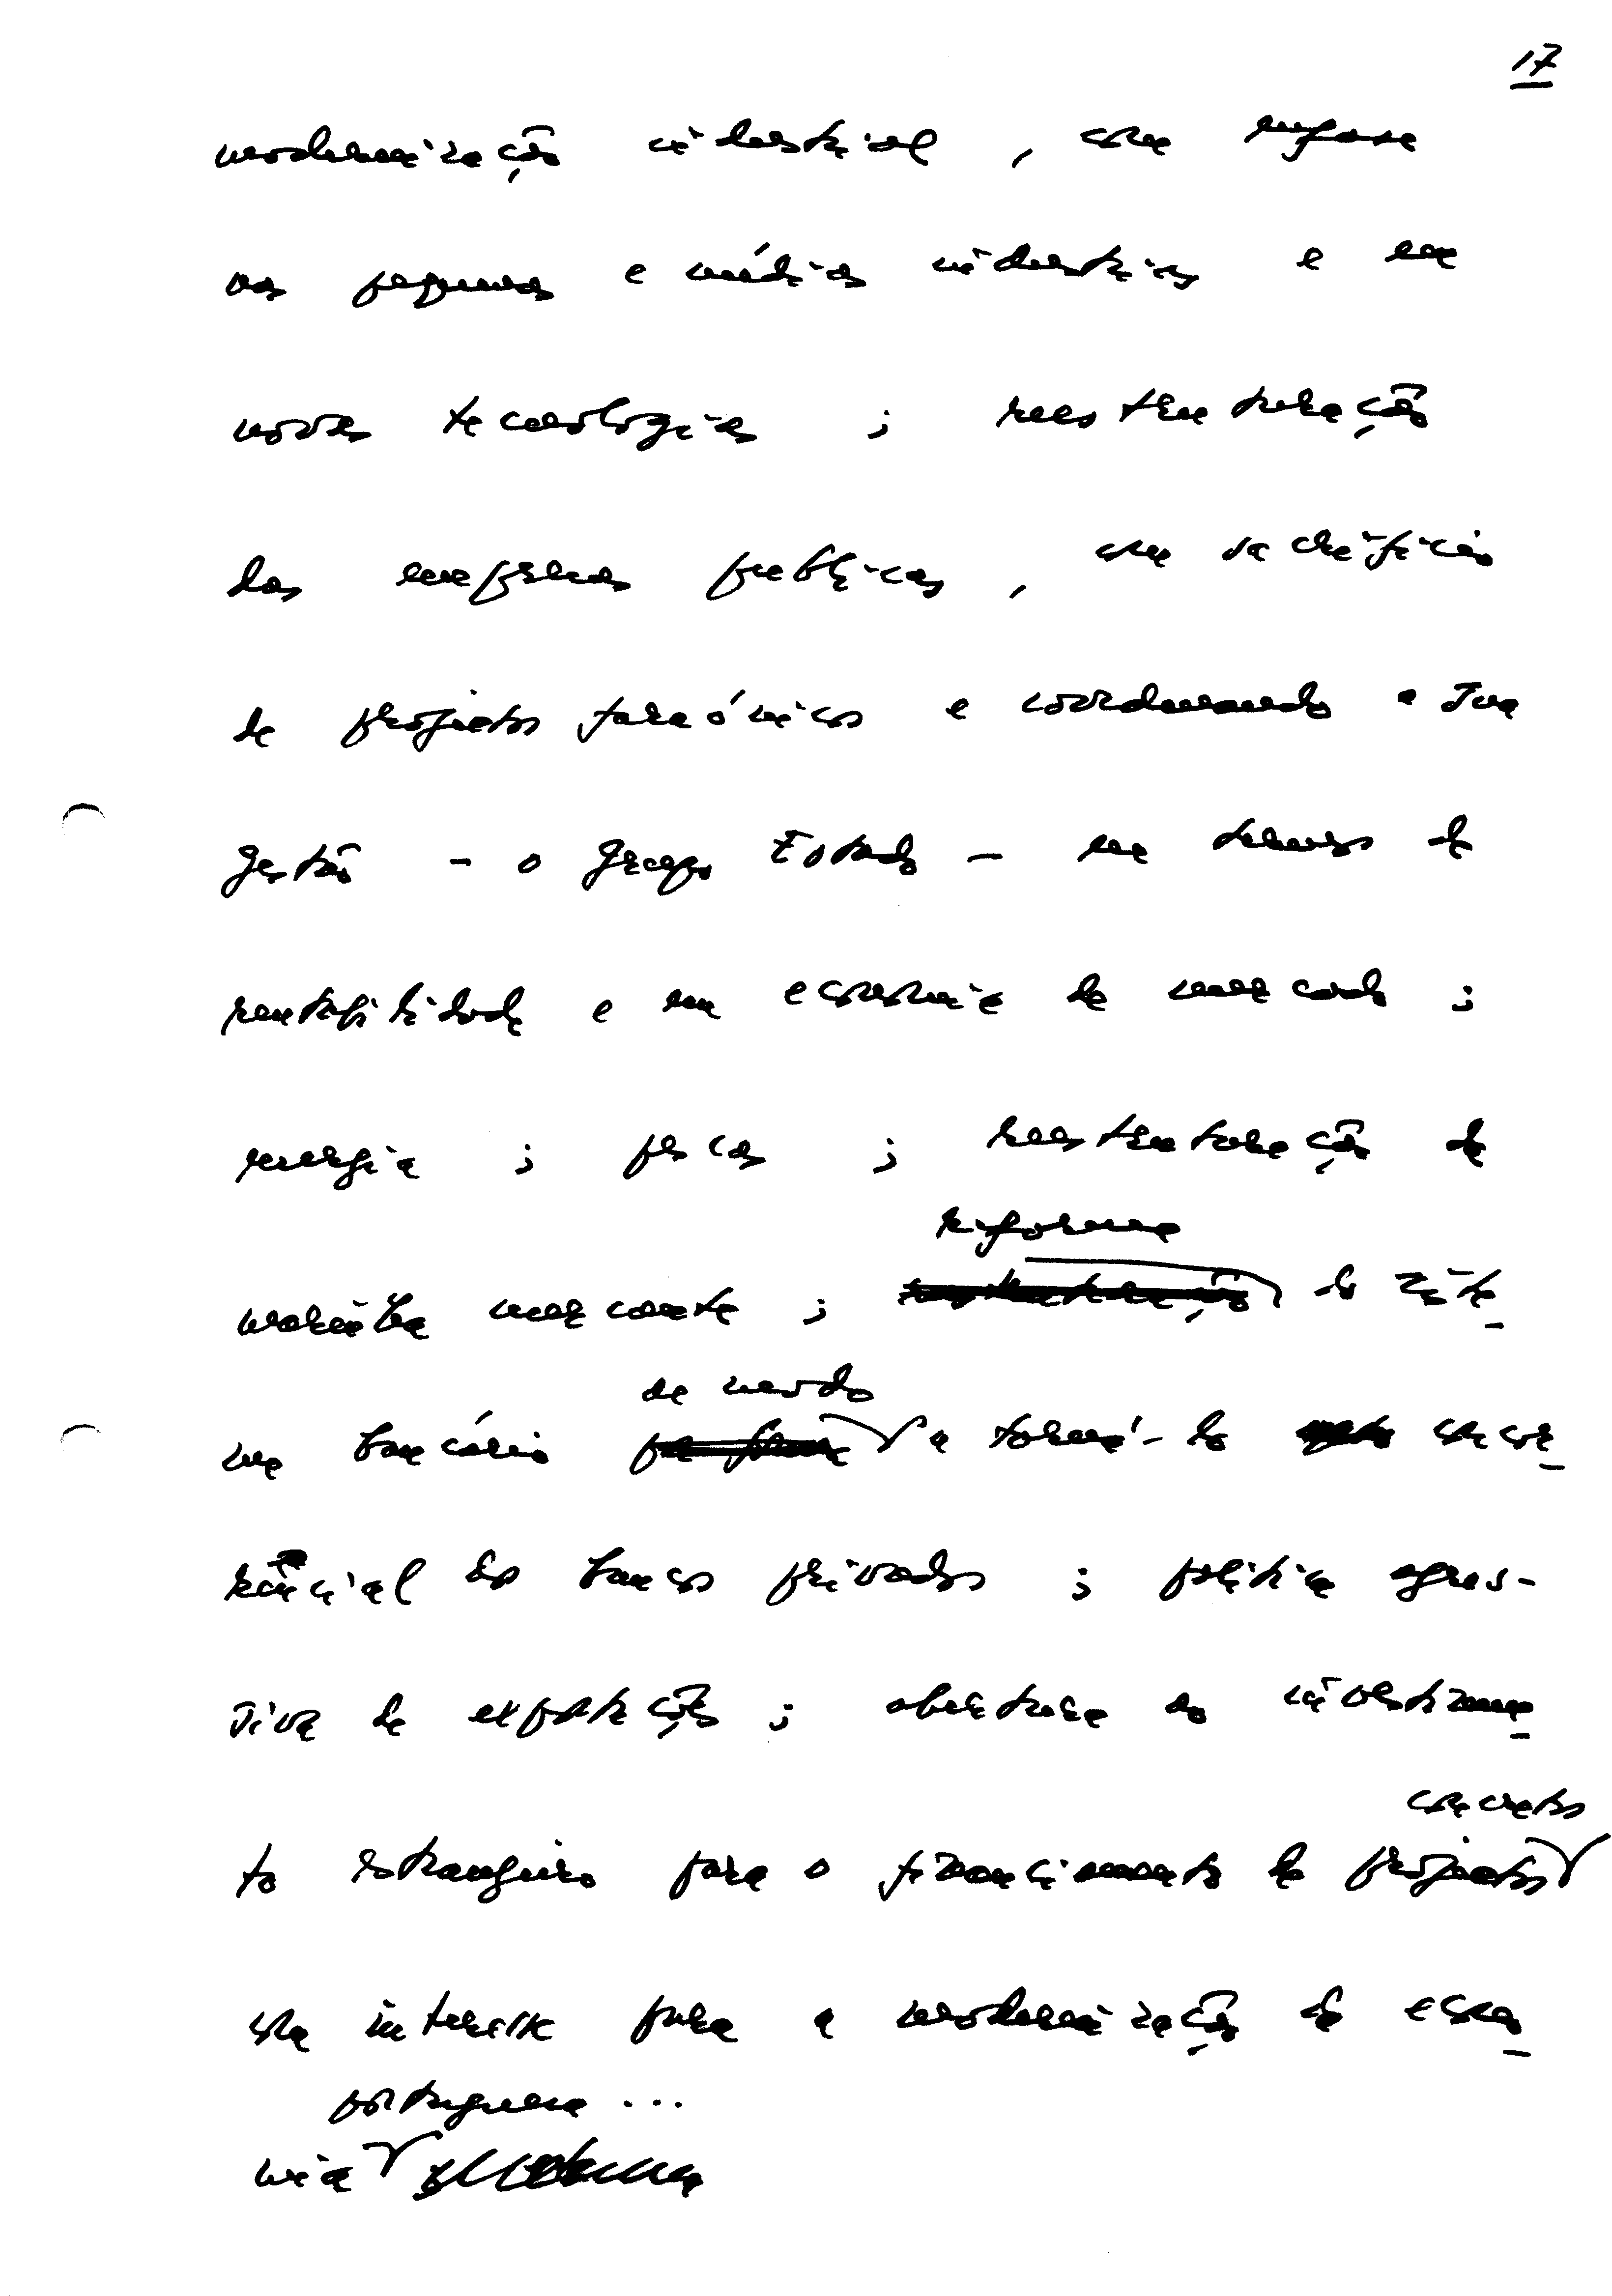 17
modernização industrial, com enfase
nas pequenas e médias indústrias e em
novas tecnologias; reestruturação
das empresas publicas, com sacrifício
de projectos faraónicos e coordenando a sua
gestão - o grupo Estado - em termos de
rentabilidade e em economia de mercado;
energia; pescas; reestruturação da
reforma
marinha mercante; do siste
de modo
ma bancário a torná-lo concor
rencial dos bancos privados; política agres-
siva de exportações; abertura ao investimen
concretos
to estrangeiro para o financiamento de projectos
com interesse para a modernização da econo
portuguesa ...
mia